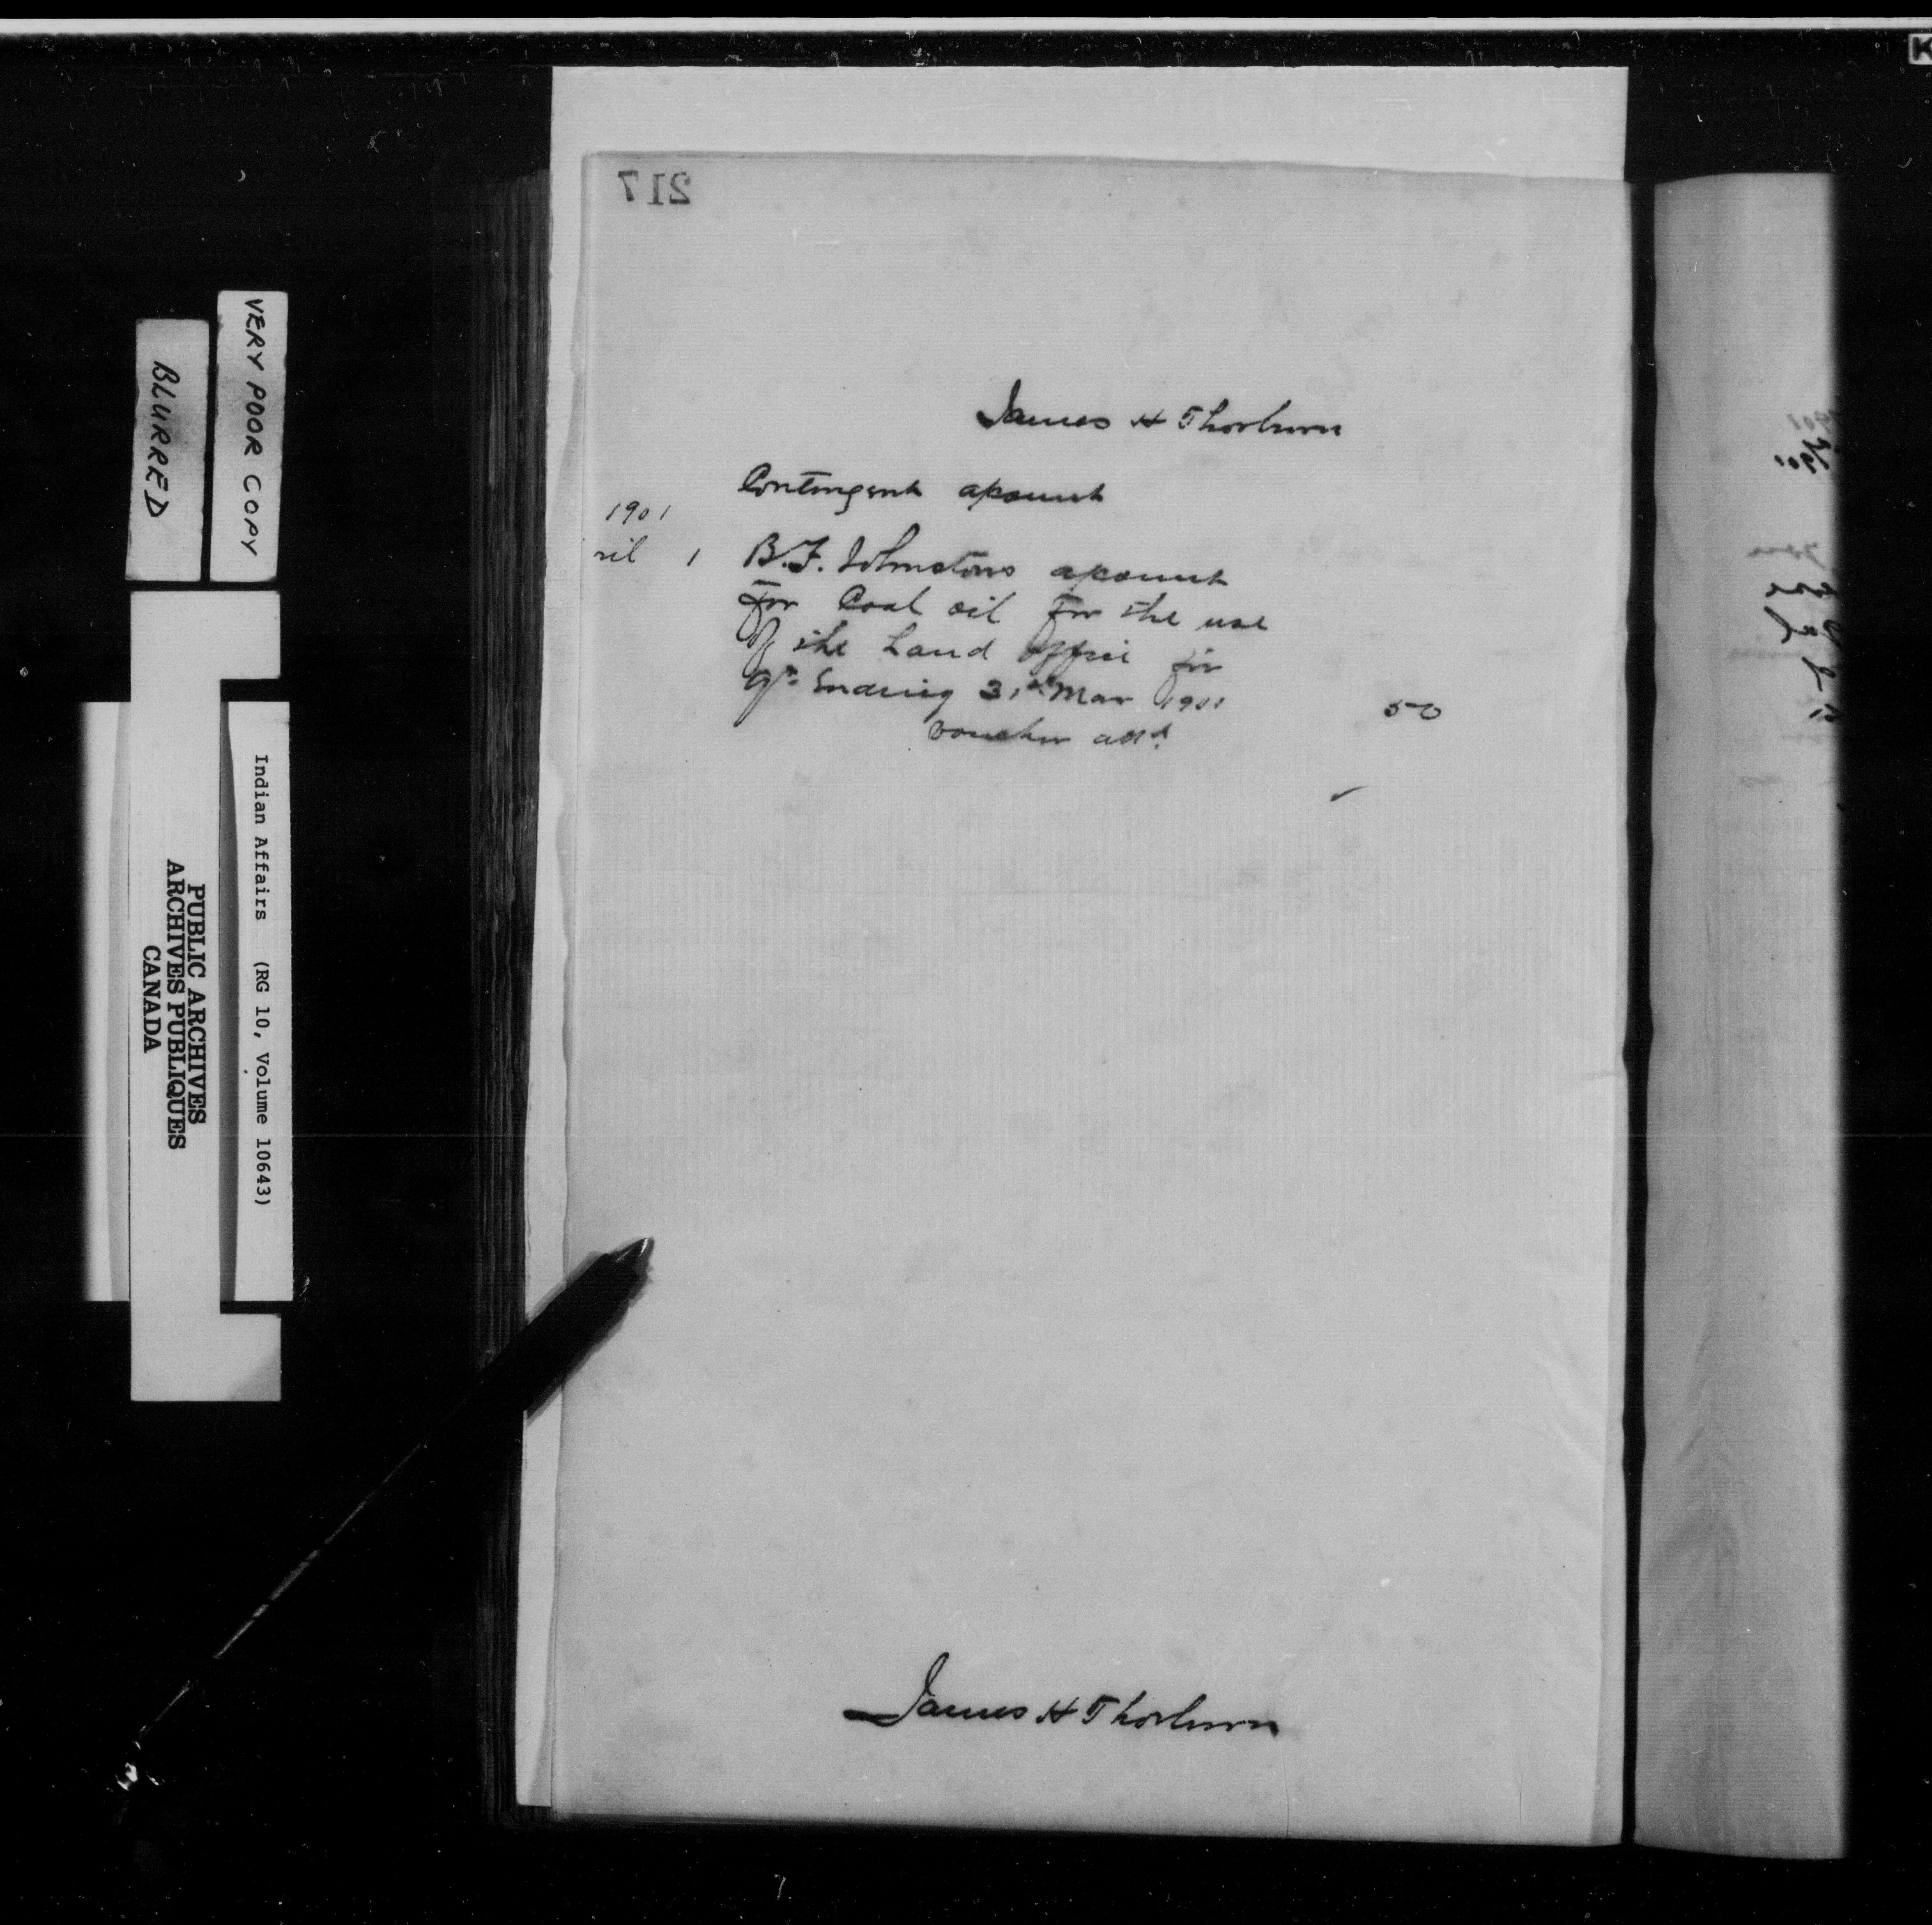 217
James H Thorburn
Contingent account
1901
ril 1 B.F. Johnstons account
for Coal oil for the use
of the Land Office for
Qr Ending 31st Mar 1901 50
voucher attd
James H Thorburn
VERY POOR COPY
BLURRED
Indian Affairs (RG 10, Volume 10643)
PUBLIC ARCHIVES
ARCHIVES PUBLIQUES
CANADA